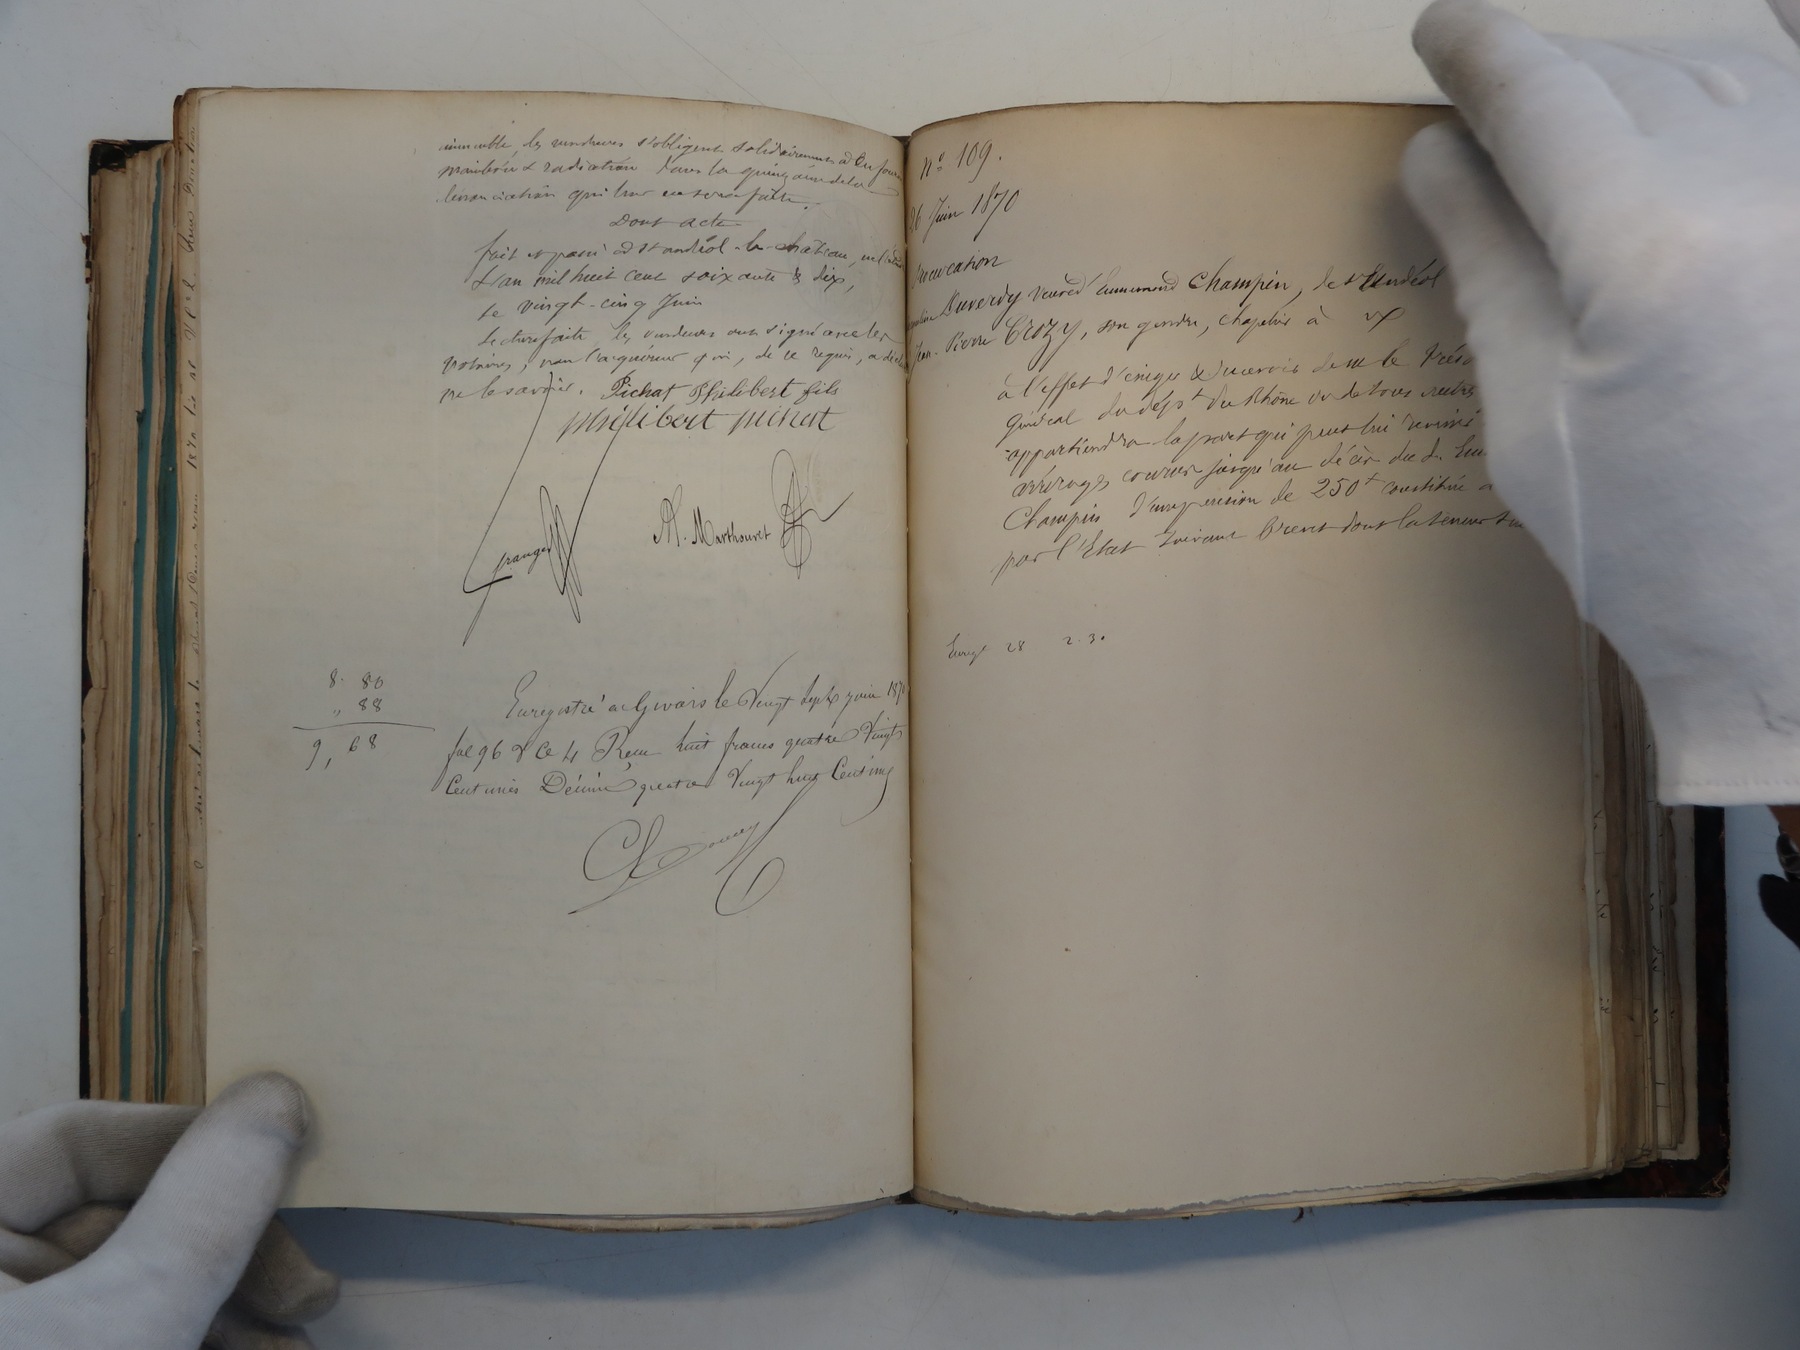 immeuble, les vendeurs s'obligent solidairement à en fournir
mainlevée & radiation dans la quinzaine de la
dénonciation qui leur en sera faite.
Dont acte
fait et passé à St andéol-le-château, en l'étude
L'an mil huit cent soixante & dix,
Le vingt-cinq Juin
Lecture faite, les vendeurs ont signé avec les
notaires, non l'acquéreur qui, de ce requis, a déclaré
ne le savoir. Pichat Philibert fils
philibert pichat
granger
M. Marthouret
8. 80
„ 88
9, 68
Enregistré à Givors le Vingt sept juin 1870
fol 96 V Ce 4 Reçu huit francs quatre Vingts
Centimes Décime quatre Vingt huit Centimes
N° 109.
26 Juin 1870
Procuration
Duverdy veuve d'Ennemond Champin, de St Andéol
Jean-Pierre Crozy, son gendre, chapelier à
à l'effet d'exiger & recevoir de M. le Tréso
Général du dépt du Rhône ou de tous autres
appartiendra la part qui peut lui revenir
arrérages courus jusqu'au décès du d. Enn
Champin d'une pension de 250f constituée a
par l'Etat suivant brevet dont la teneur su
Enregt 28 2.30